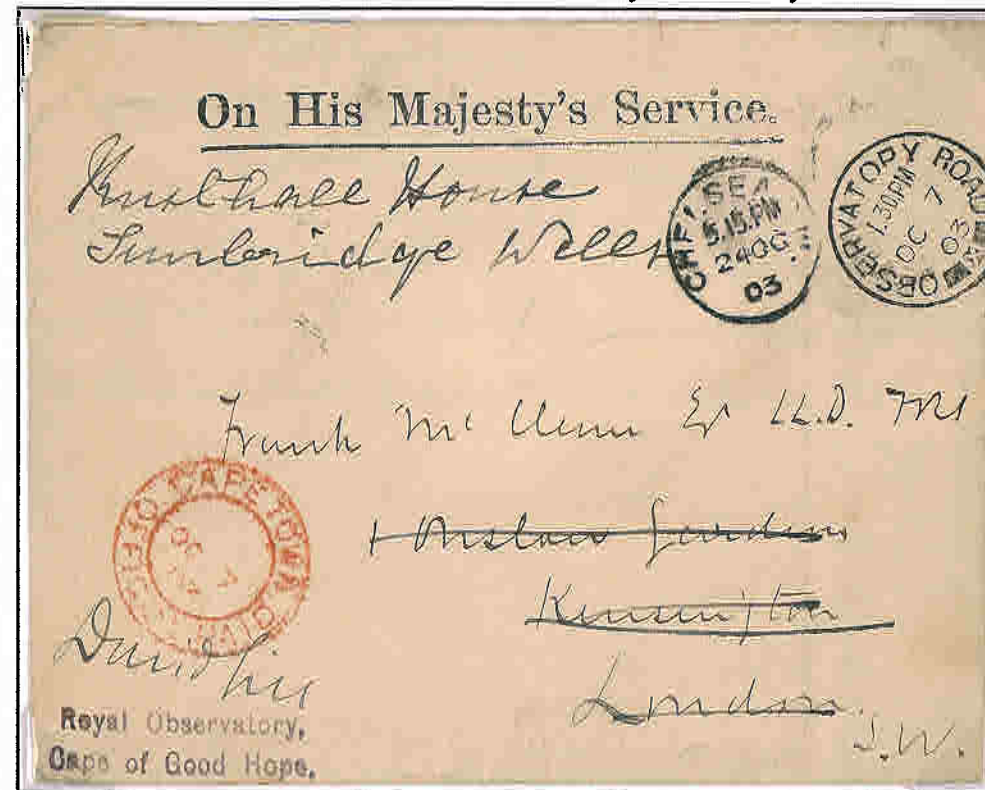 On His Majesty's Service.
Rusthall House
Tunbridge Wells
CHELSEA
5.15.PM
24 OC
03
OBSERVATORY ROAD
1.30.PM
OC 7
03
Frank McClean Esq LL.D. FRS
1 Onslow Gardens
Kensington
London
S.W.
CAPE TOWN
OFFICIAL
OC 7
David Gill
Royal Observatory,
Cape of Good Hope.